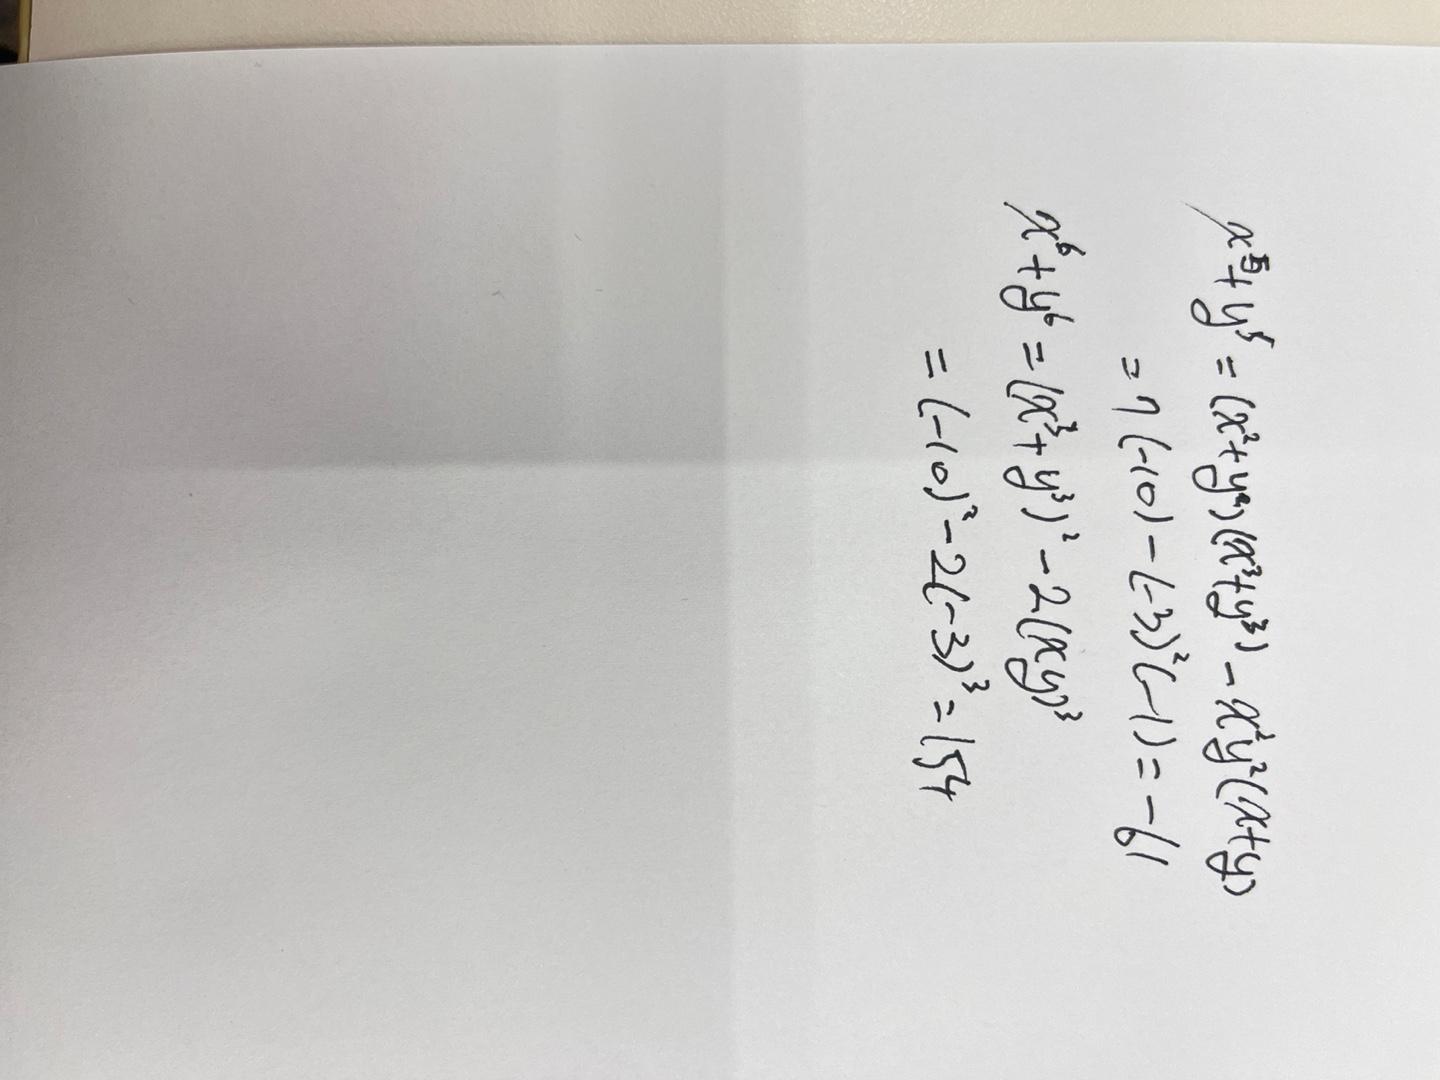 x⁵+y⁵ = (x²+y²)(x³+y³) - x²y²(x+y)
= 7(-10) - (-3)²(-1) = -61
x⁶+y⁶ = (x³+y³)² - 2(xy)³
= (-10)² - 2(-3)³ = 154